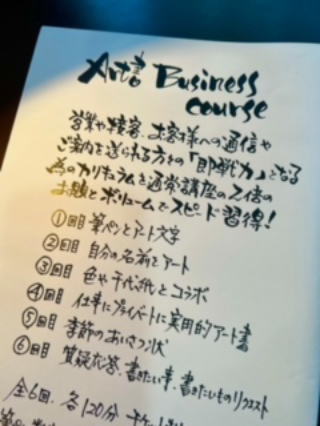 Art書 Business
course
営業や接客、お客様への通信や
ご案内を送られる方々の「即戦力」となる
為のカリキュラムを通常講座の2倍の
お題とボリュームでスピード習得!
①回目 筆ペンとアート文字
②回目 自分の名前をアート
③回目 色や千代紙とコラボ
④回目 仕事にプライベートに実用的アート書
⑤回目 季節のあいさつ状
⑥回目 質疑応答、書きたい事、書きたいものリクエスト
全6回、各120分